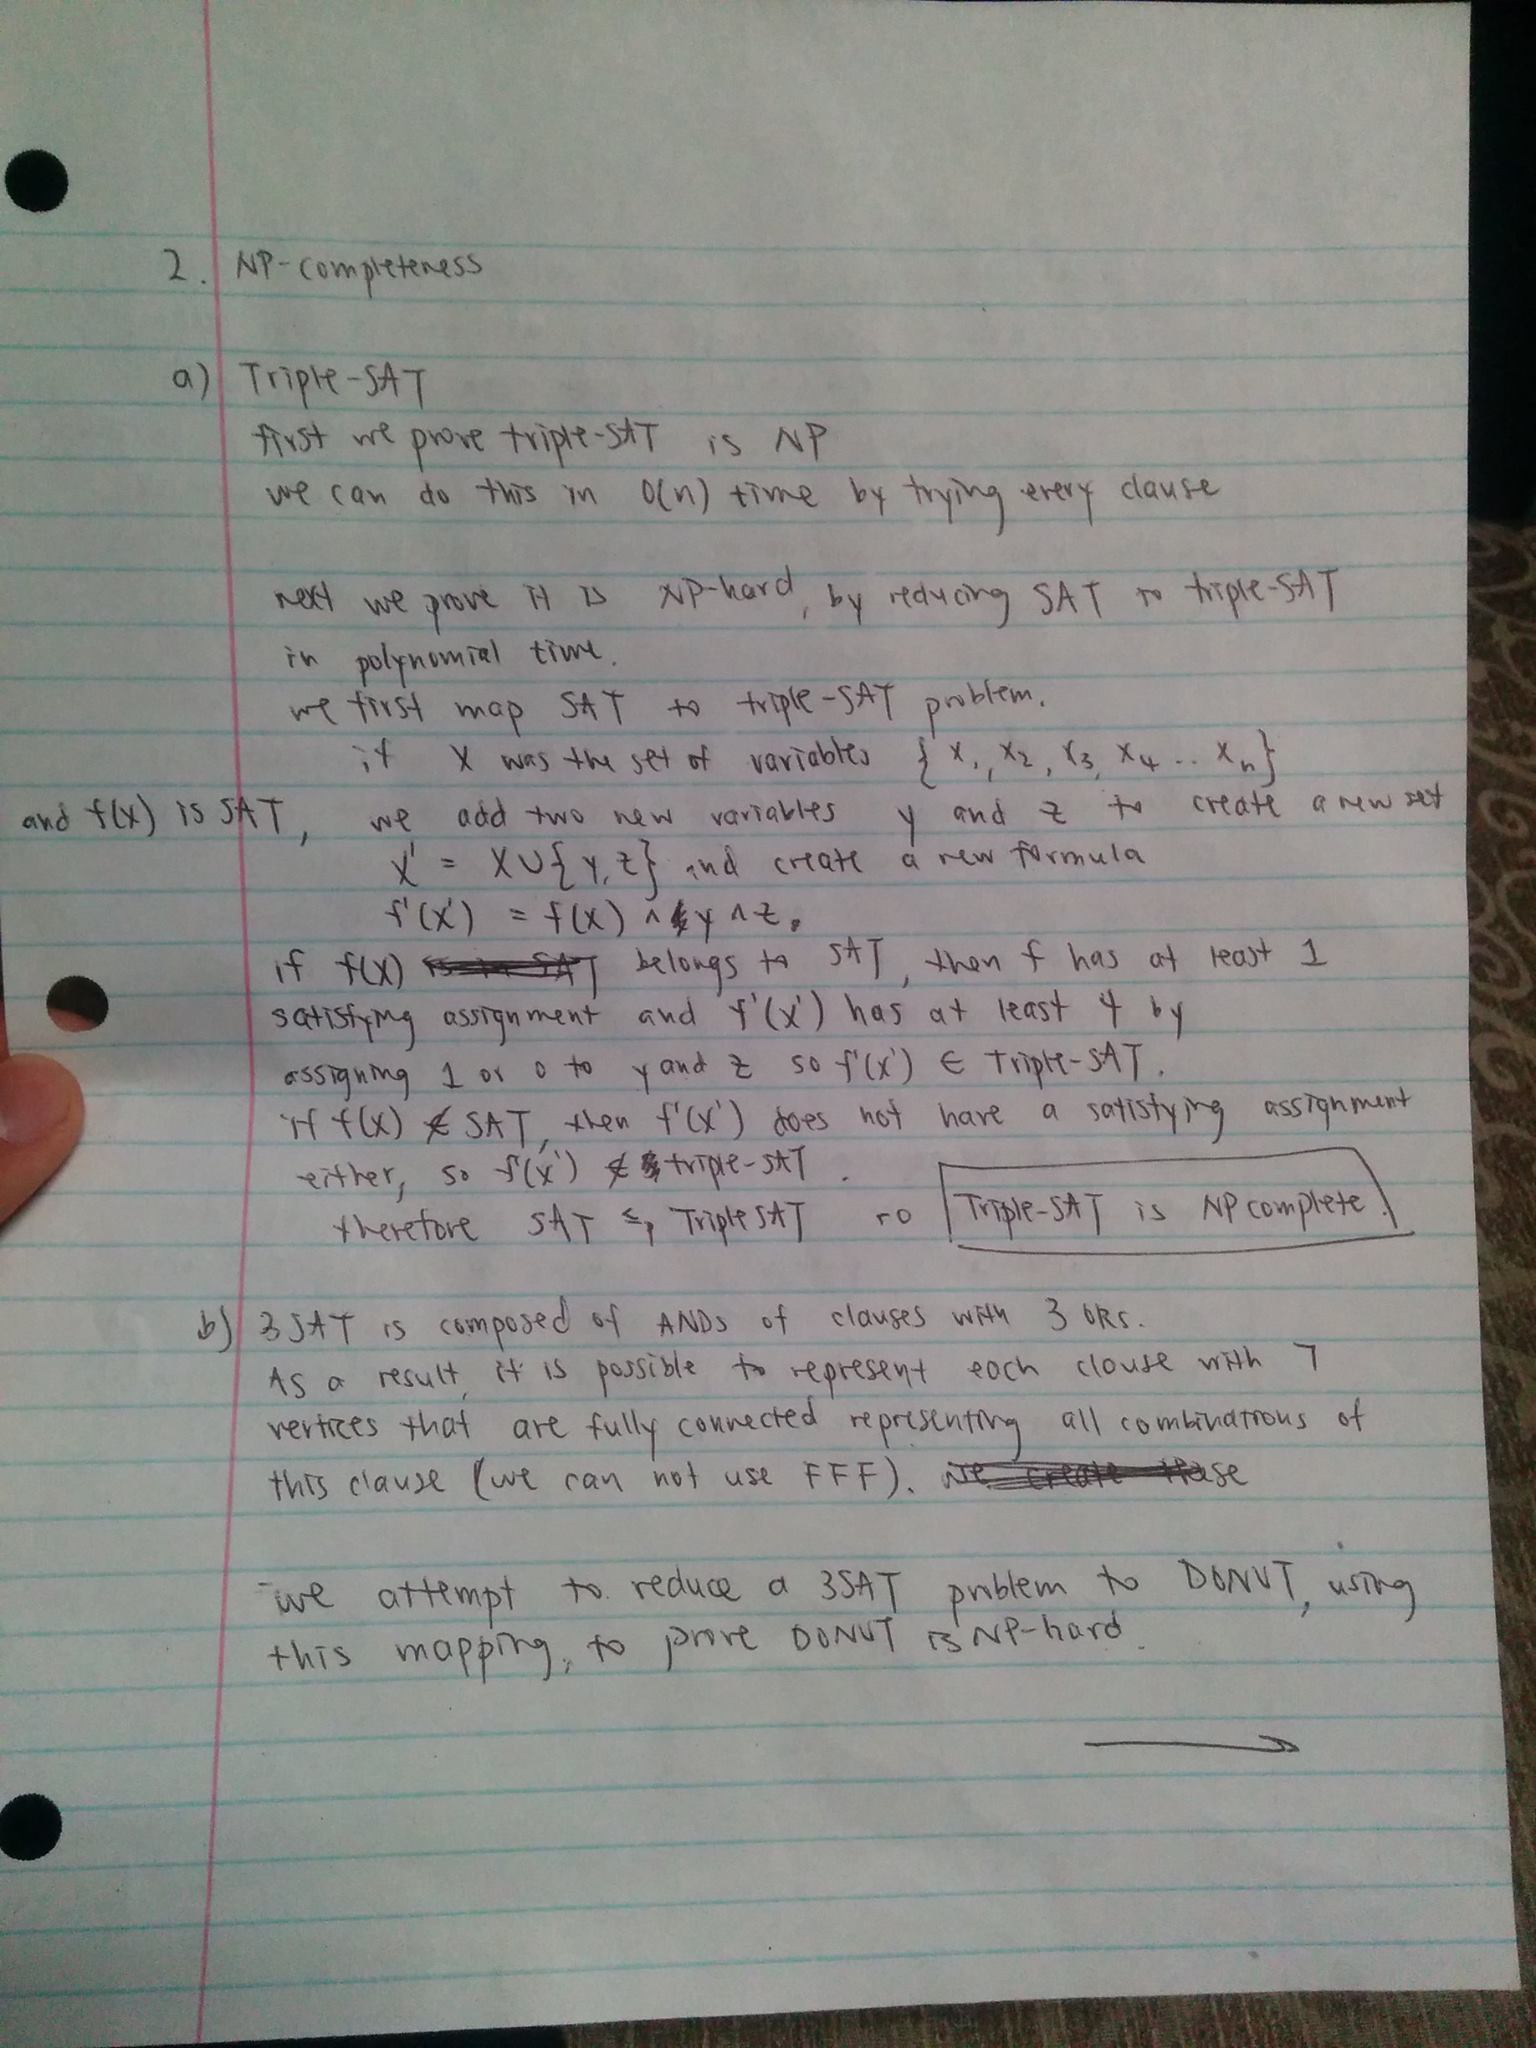 2. NP-completeness
a) Triple-SAT
first we prove triple-SAT is NP
we can do this in O(n) time by trying every clause
next we prove it is NP-hard, by reducing SAT to triple-SAT
in polynomial time.
we first map SAT to triple-SAT problem.
if X was the set of variables { x1, x2, x3, x4 .. xn}
and f(x) is SAT, we add two new variables y and z to create a new set
X' = X∪{y,z} and create a new formula
f'(x') = f(x) ∧ y ∧ z.
if f(x) belongs to SAT, then f has at least 1
satisfying assignment and f'(x') has at least 4 by
assigning 1 or 0 to y and z so f'(x') ∈ Triple-SAT.
if f(x) ∉ SAT, then f'(x') does not have a satisfying assignment
either, so f'(x') ∉ triple-SAT.
therefore SAT ≤p Triple SAT so Triple-SAT is NP complete.
b) 3SAT is composed of ANDs of clauses with 3 ORs.
As a result, it is possible to represent each clause with 7
vertices that are fully connected representing all combinations of
this clause (we can not use FFF).
we attempt to reduce a 3SAT problem to DONUT, using
this mapping, to prove DONUT is NP-hard.